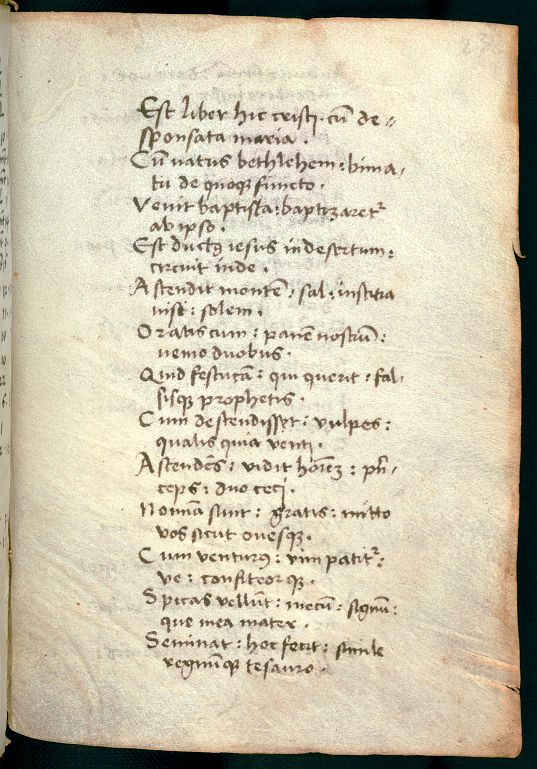 Est liber hic cristi· cũ de〃
sponsata maria·
Cũ natus bethlehem: bima·
tu de quoq₃ functo·
Venit baptista: baptizaret᷑
ab ipso·
Est ductꝰ iesus indesertum:
circuit inde·
Ascendit montẽ: sal· iusticia
nisi: solem·
Oratis cum: panẽ nostrũ:
nemo duobus·
Quid festucã: qui querit: fal·
sisq₃ prophetis·
Cum descendisset: vulpes:
qualis quia venti·
Ascendẽs: vidit hoĩez: prĩ·
ceps: duo ceci·
Nomina sunt: gratis: mitto
vos sicut ouesq₃·
Cum venturꝰ: vim patit᷑:
ve: confiteor q₃·
Spicas vellũt: mecũ: signũ:
que mea mater·
Seminat: hoc fecit: simile
regnũq₃ tesauro·